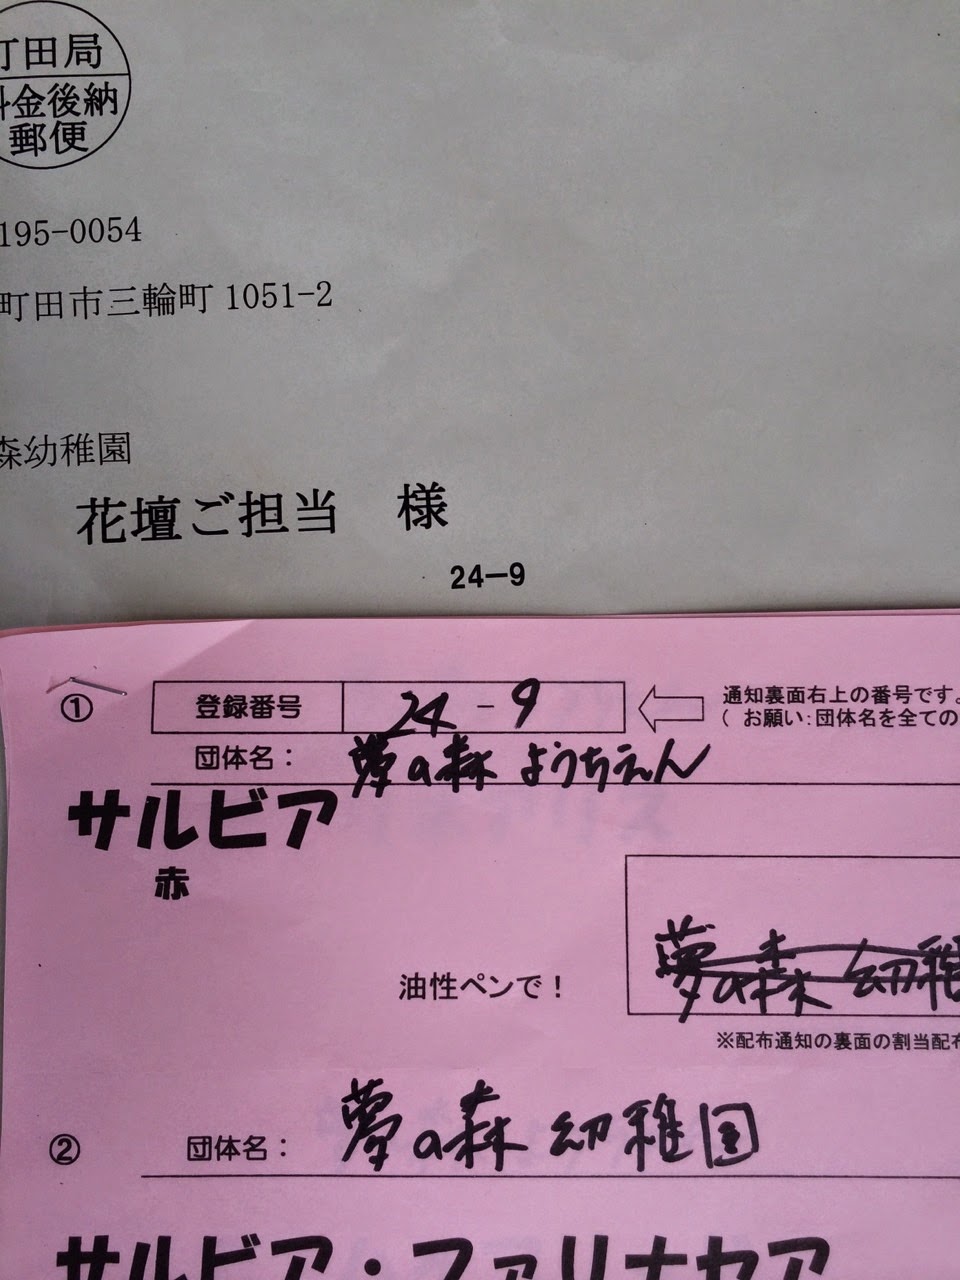 町田局
料金後納
郵便
195-0054
町田市三輪町1051-2
森幼稚園
花壇ご担当　様
24-9
① 登録番号 24-9
通知裏面右上の番号です。
( お願い:団体名を全ての
団体名: 夢の森ようちえん
サルビア
赤
油性ペンで!
夢の森 幼稚
※配布通知の裏面の割当配布
② 団体名: 夢の森 幼稚園
サルビア・ファリナセア